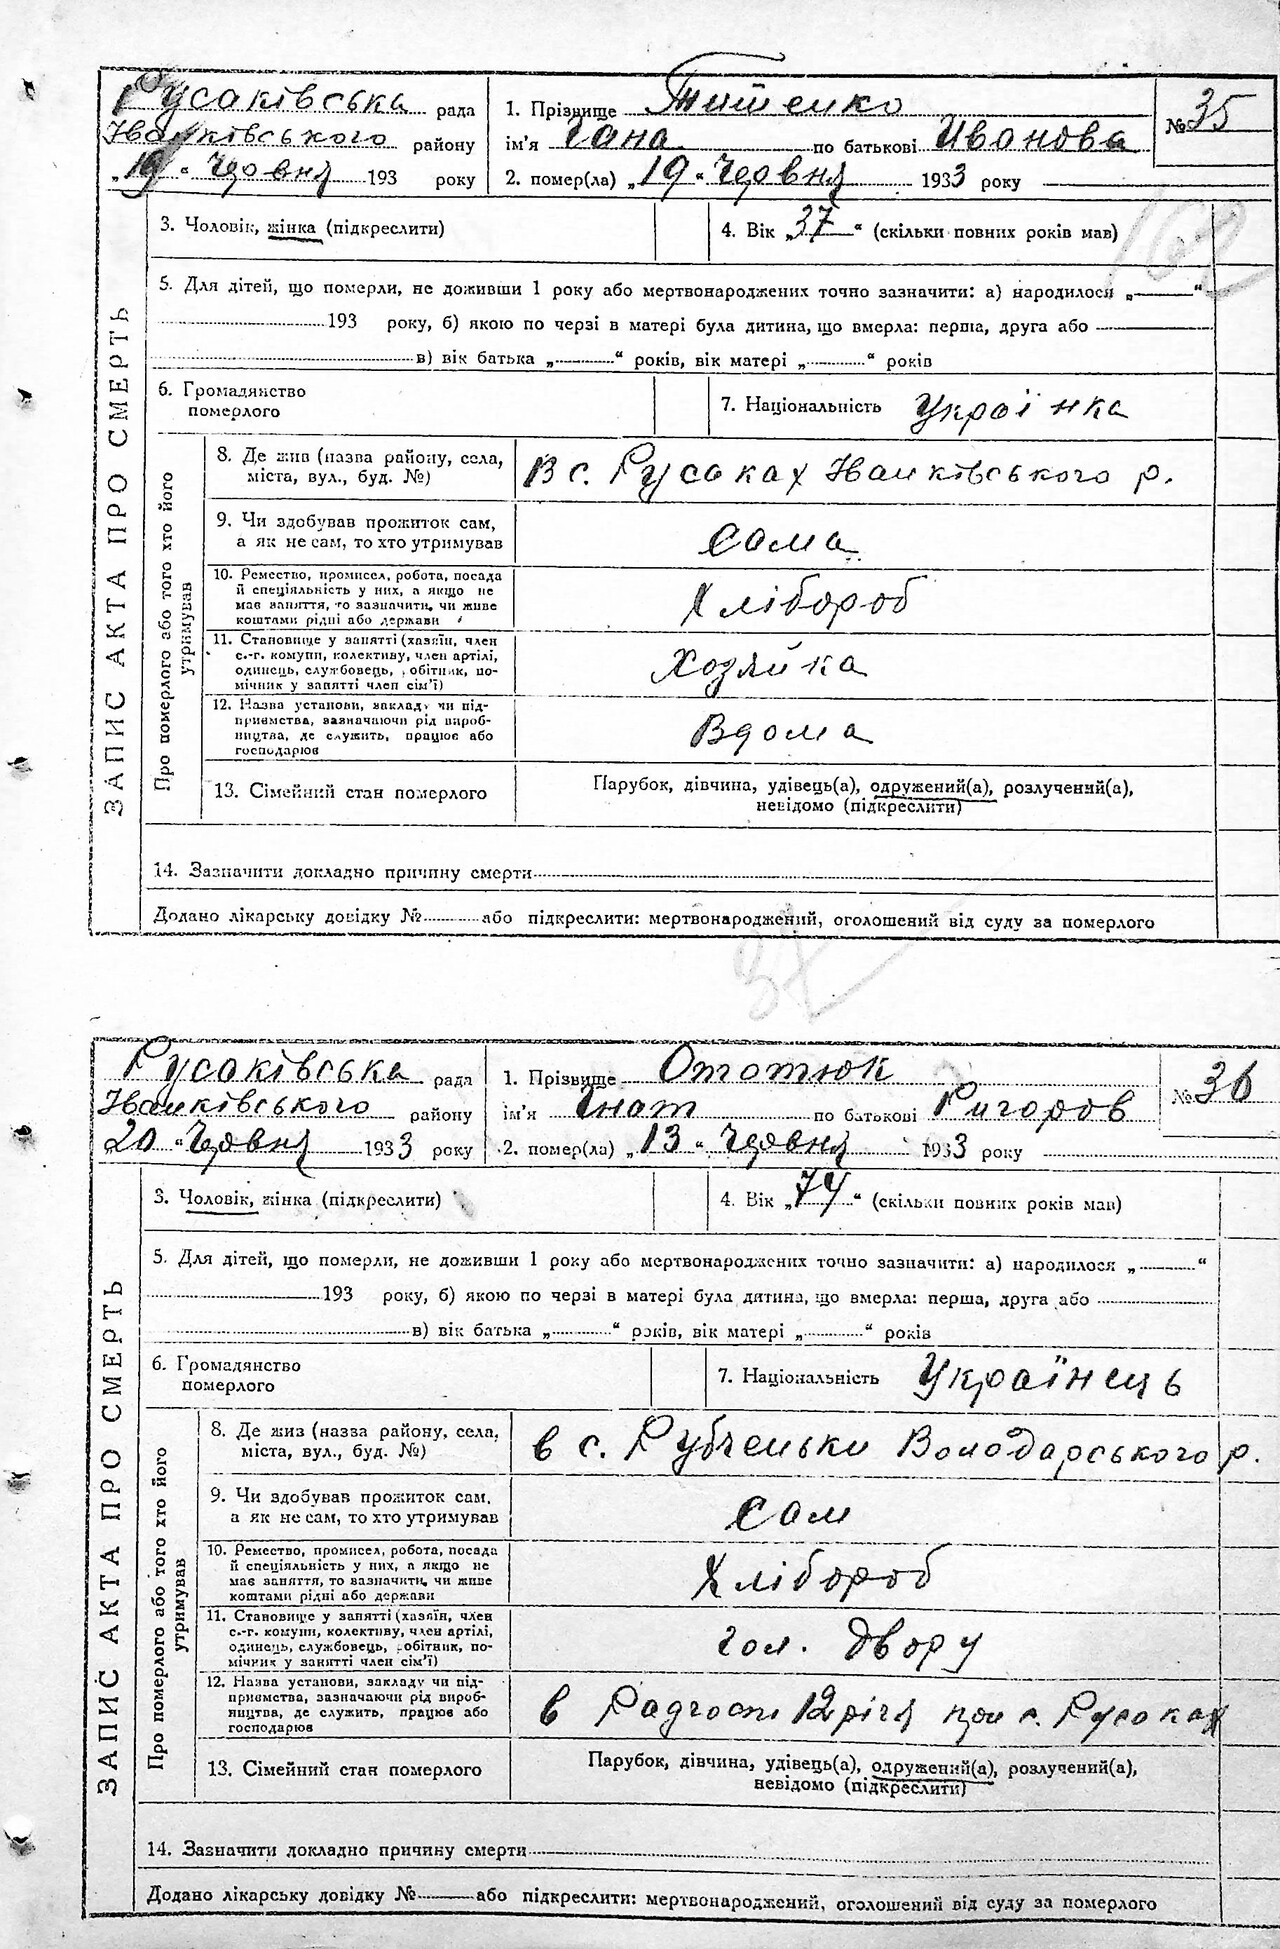 Русаківська рада
Іванківського району
„19" Червня 193 року
1. Прізвище Тищенко
ім'я Гана по батькові Иванова
2. помер(ла) „19" Червня 1933 року
№ 35
3. Чоловік, жінка (підкреслити)
4. Вік „37" (скільки повних років мав)
162
5. Для дітей, що померли, не доживши 1 року або мертвонароджених точно зазначити: а) народилося „ "
193 року, б) якою по черзі в матері була дитина, що вмерла: перша, друга або
в) вік батька „ " років, вік матері „ " років
6. Громадянство
померлого
7. Національність Українка
ЗАПИС АКТА ПРО СМЕРТЬ
Про померлого або того хто його
утримував
8. Де жив (назва району, села,
міста, вул., буд. №)
В с. Русаках Іванківського р.
9. Чи здобував прожиток сам,
а як не сам, то хто утримував
сама
10. Ремество, промисел, робота, посада
й спеціяльність у них, а якщо не
має заняття, то зазначити, чи живе
коштами рідні або держави
Хлібороб
11. Становище у занятті (хазяїн, член
с.-г. комуни, колективу, член артілі,
одинець, службовець, робітник, по-
мічник у занятті член сім'ї)
Хозяйка
12. Назва установи, закладу чи під-
приємства, зазначаючи рід вироб-
ництва, де служить, працює або
господарює
Вдома
13. Сімейний стан померлого
Парубок, дівчина, удівець(а), одружений(а), розлучений(а),
невідомо (підкреслити)
14. Зазначити докладно причину смерти
Додано лікарську довідку № або підкреслити: мертвонароджений, оголошений від суду за померлого
37
Русаківська рада
Іванківського району
20 " Червня 1933 року
1. Прізвище Ототюк
ім'я Гнат по батькові Ригоров
2. помер(ла) „13" Червня 1933 року
№ 36
3. Чоловік, жінка (підкреслити)
4. Вік „74" (скільки повних років мав)
5. Для дітей, що померли, не доживши 1 року або мертвонароджених точно зазначити: а) народилося „ "
193 року, б) якою по черзі в матері була дитина, що вмерла: перша, друга або
в) вік батька „ " років, вік матері „ " років
6. Громадянство
померлого
7. Національність Українець
ЗАПИС АКТА ПРО СМЕРТЬ
Про померлого або того хто його
утримував
8. Де жив (назва району, села,
міста, вул., буд. №)
в с. Рубченьки Володарського р.
9. Чи здобував прожиток сам,
а як не сам, то хто утримував
сам
10. Ремество, промисел, робота, посада
й спеціяльність у них, а якщо не
має заняття, то зазначити, чи живе
коштами рідні або держави
Хлібороб
11. Становище у занятті (хазяїн, член
с.-г. комуни, колективу, член артілі,
одинець, службовець, робітник, по-
мічник у занятті член сім'ї)
гол. двору
12. Назва установи, закладу чи під-
приємства, зазначаючи рід вироб-
ництва, де служить, працює або
господарює
в Радгоспі 12річя при с. Русаках
13. Сімейний стан померлого
Парубок, дівчина, удівець(а), одружений(а), розлучений(а),
невідомо (підкреслити)
14. Зазначити докладно причину смерти
Додано лікарську довідку № або підкреслити: мертвонароджений, оголошений від суду за померлого